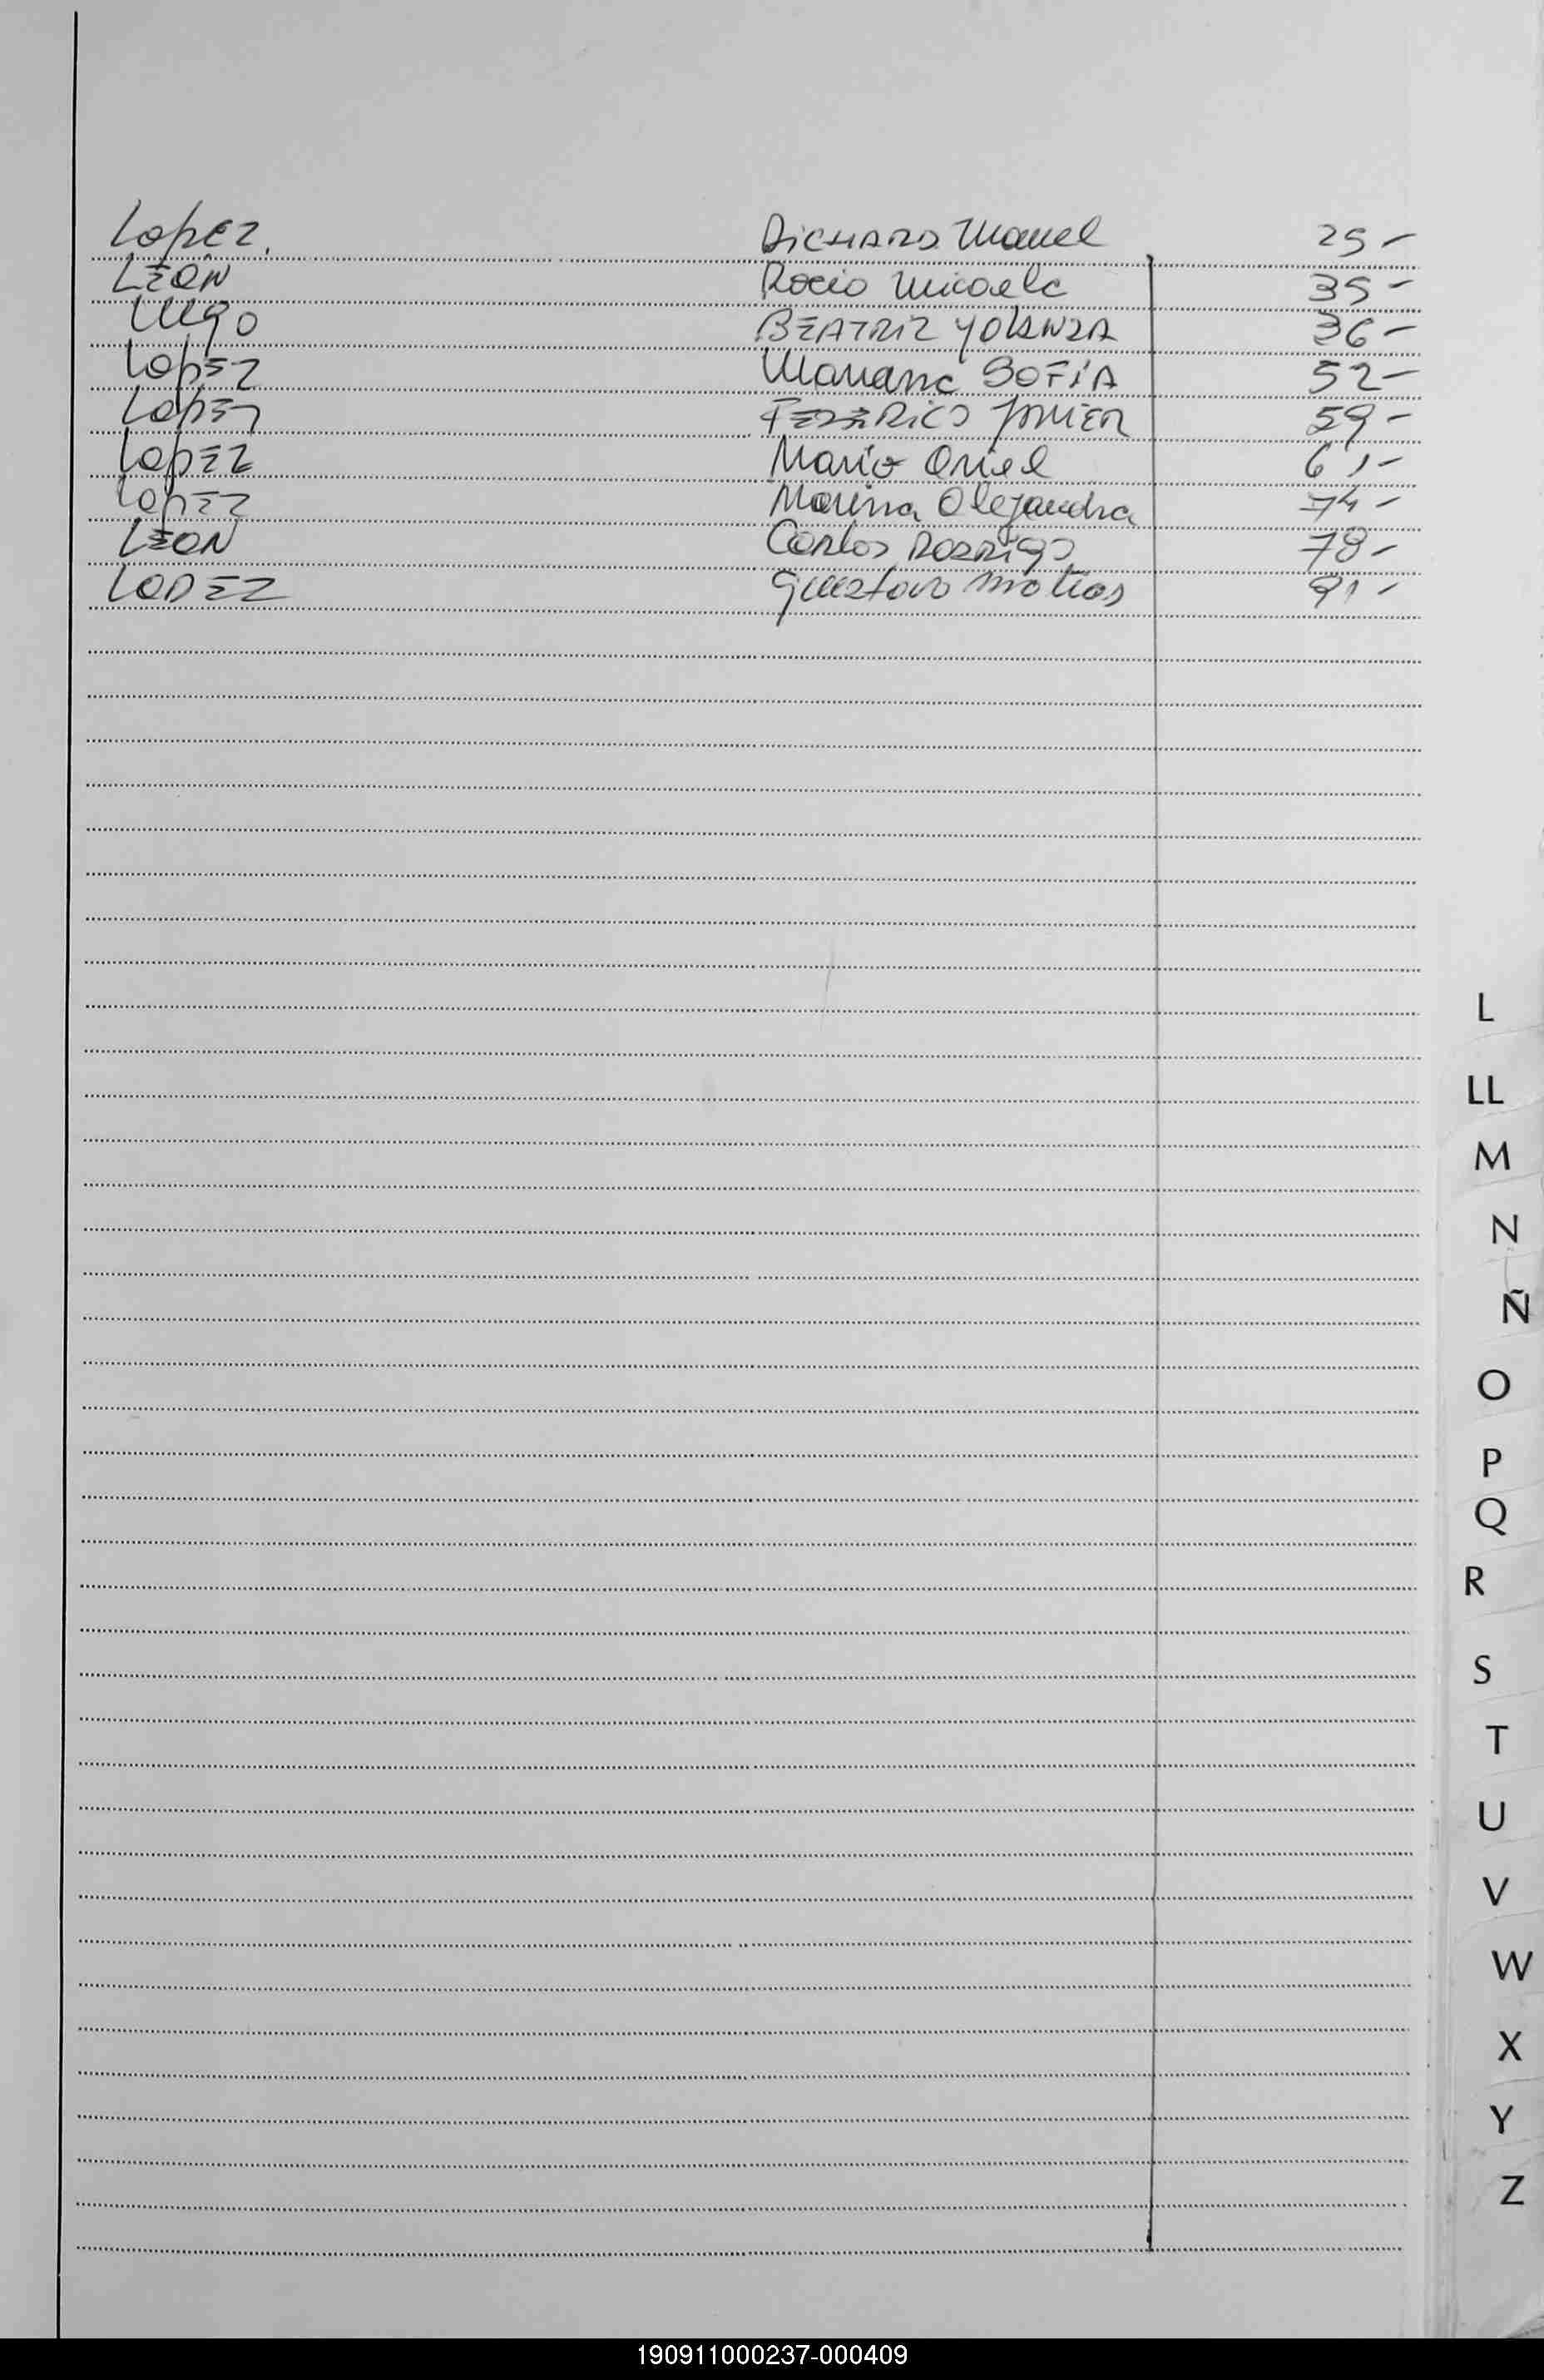 Lopez. RICHARD Manuel 25-
LEON Rocio Micaela 35-
Lugo BEATRIZ YOLANDA 36-
LopEz Mariana SOFIA 52-
LopEz FEDERICO JAVIER 59-
LopEz Mario Oriel 61-
LopEz Marina Alejandra 74-
LEON Carlos RODRIGO 78-
LOPEZ Gustavo Matias 91-
L
LL
M
N
Ñ
O
P
Q
R
S
T
U
V
W
X
Y
Z
190911000237-000409